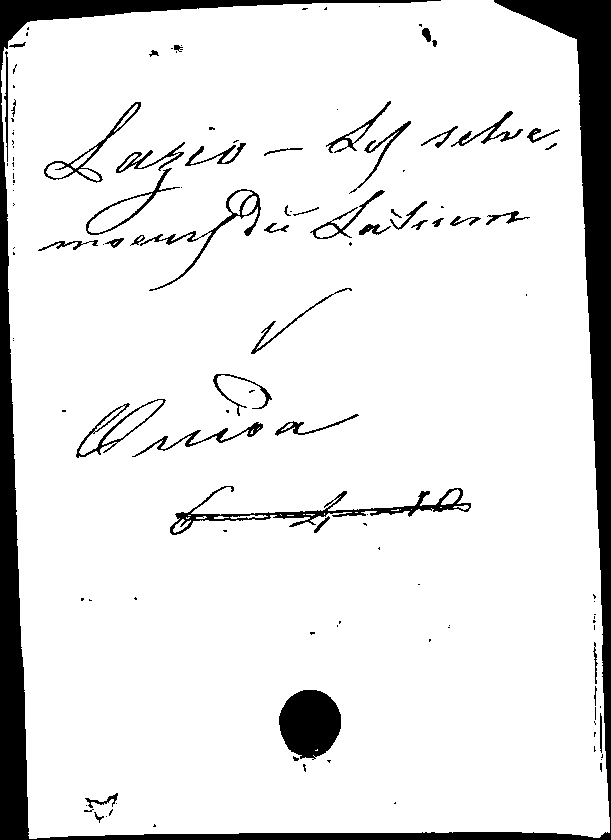 Lazio – Les selve,
moeurs du Latium
Ouida
6 4 10